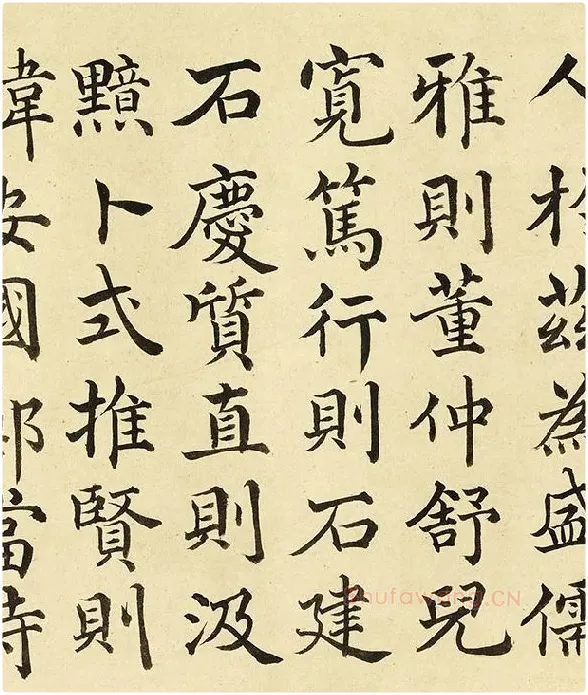 人於茲為盛儒
雅則董仲舒兒
寬篤行則石建
石慶質直則汲
黯卜式推賢則
韋安國鄭當時
shufawang.CN